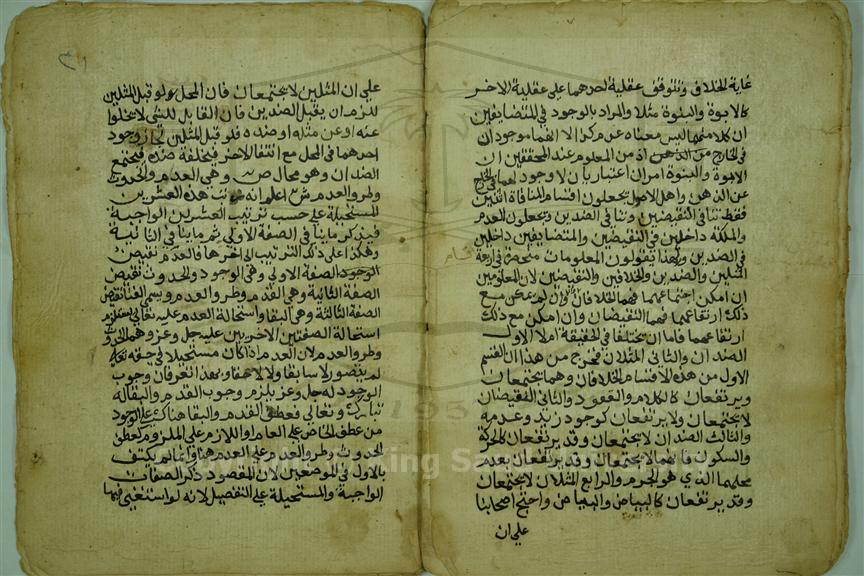 غاية الخلاف وتتوقف عقلية احدهما على عقلية الاخر
كالابوة والبنوة مثلا والمراد بالوجود في المتضايفين
ان كلا منهما ليس معناه عدم كذا لا انهما موجودان
في الخارج عن الذهن اذ من المعلوم عند المحققين ان
الابوة والبنوة امران اعتباريان لا وجود لهما في الخارج
عن الذهن واهل الاصول يجعلون اقسام المنافاة اثنين
فقط تنافي النقيضين وتنافي الضدين ويجعلون العدم
والملكة داخلين في النقيضين والمتضايفين داخلين
في الضدين ولهذا يقولون المعلومات منحصرة في اربعة
المثلين والضدين والخلافين والنقيضين لان المعلومين
ان امكن اجتماعهما فهما الخلافان وان لم يمكن مع
ذلك ارتفاعهما فهما النقيضان وان امكن مع ذلك
ارتفاعهما فاما ان يختلفا في الحقيقة ام لا الاول
الضدان والثاني المثلان فخرج من هذا ان القسم
الاول من هذه الاقسام الخلافان وهما يجتمعان
ويرتفعان كالكلام والقعود والثاني النقيضان
لا يجتمعان ولا يرتفعان كوجود زيد وعدمه
والثالث الضدان لا يجتمعان وقد يرتفعان كالحركة
والسكون فانهما لا يجتمعان وقد يرتفعان بعدم
محلهما الذي هو الجرم والرابع المثلان لا يجتمعان
وقد يرتفعان كالبياض والبياض واحتج اصحابنا
على ان
على ان المثلين لا يجتمعان فان المحل لو قبل المثلين
للزم ان يقبل الضدين فان القابل للشي لا يخلوا
عنه او عن مثله او ضده فلو قبل المثلين لجاز وجود
احدهما في المحل مع انتفا الاخر فيخلفه ضده فيجتمع
الضدان وهو محال ص وهي العدم والحدوث
وطرو العدم ش اعلم انه رتب هذه العشرين
المستحيلة على حسب ترتيب العشرين الواجبة
فيذكر ما ينافي الصفة الاولى ثم ما ينافي الثانية
وهكذا على ذلك الترتيب الى اخرها فالعدم نقيض
الوجود الصفة الاولى وهي الوجود والحدوث نقيض
الصفة الثانية وهي القدم وطرو العدم ويسمى الفنا نقيض
الصفة الثالثة وهي البقا واستحالة العدم عليه تعالى يستلزم
استحالة الصفتين الاخريين عليه جل وعز وهما الحدوث
وطرو العدم لان العدم اذا كان مستحيلا في حقه تعالى
لم يتصور لا سابقا ولا لاحقا وبهذا تعرف ان وجوب
الوجود له جل وعز يلزم وجوب القدم والبقا له
تبارك وتعالى فعطف القدم والبقا هناك على الوجود
من عطف الخاص على العام او اللازم على الملزوم كعطف
الحدوث وطرو العدم على العدم هنا وانما لم يكتف
بالاول في الموضعين لان المقصود ذكر الصفات
الواجبة والمستحيلة على التفصيل لانه لو استغنى فيها